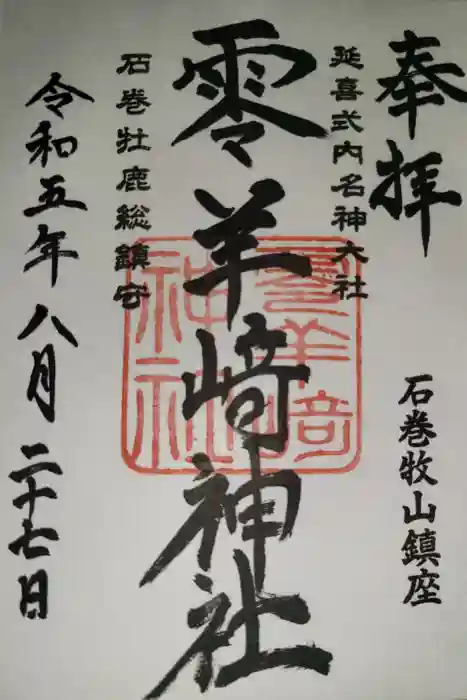 奉拝
石巻牧山鎮座
延喜式内名神大社
零羊崎神社
石巻牡鹿総鎮守
令和五年八月二十七日
零羊崎神社